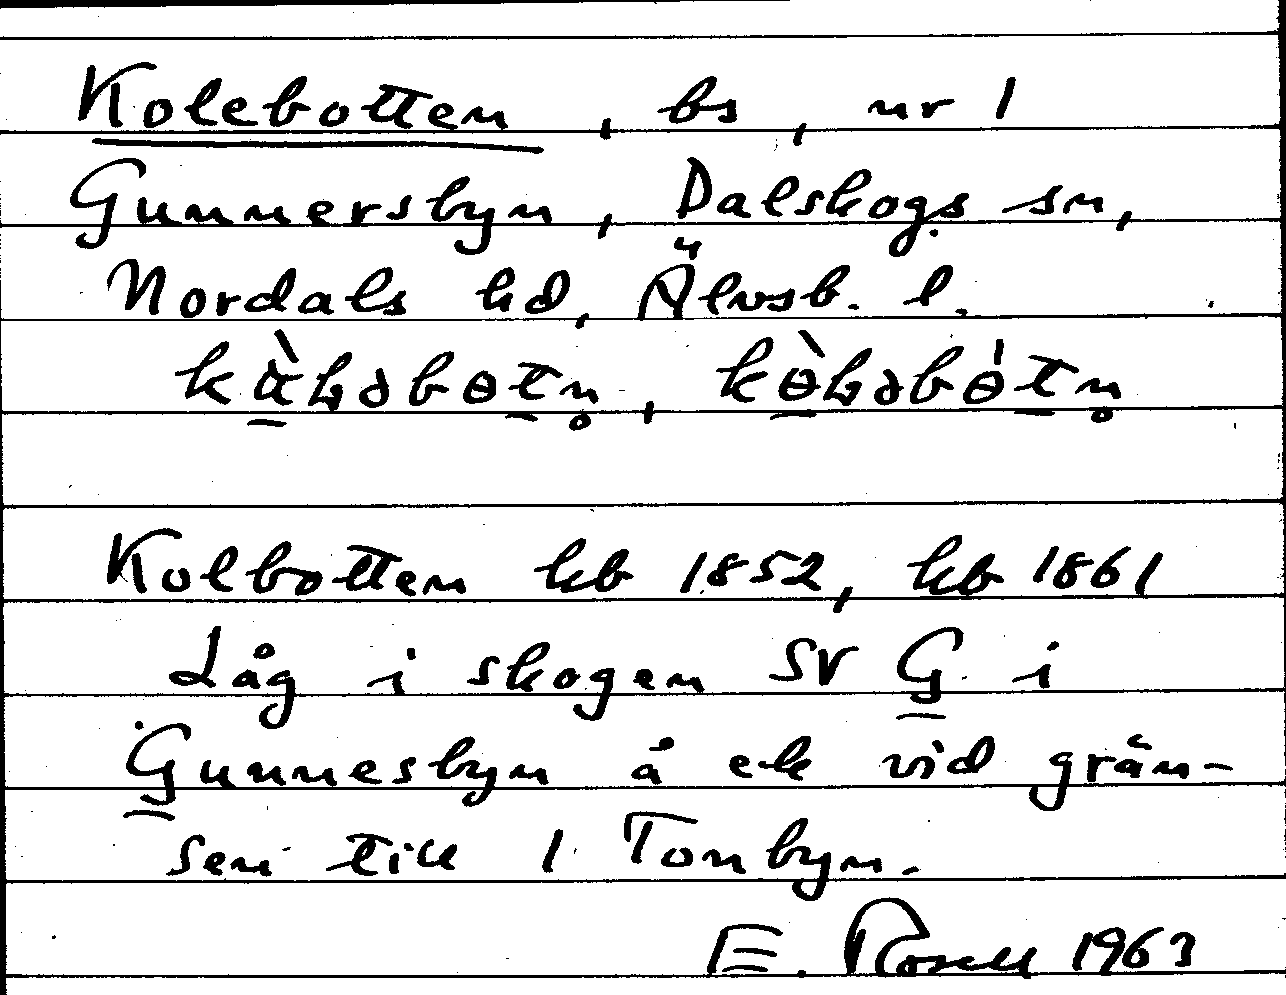 Kolebotten, bs, nr 1
Gunnersbyn, Dalskogs sn,
Nordals hd, Älvsb. l.
Kolbotten hb 1852, hb 1861
Låg i skogen SV G i
Gunnesbyn å ek vid grän-
sen till 1 Tonbyn.
E. Rosell 1963